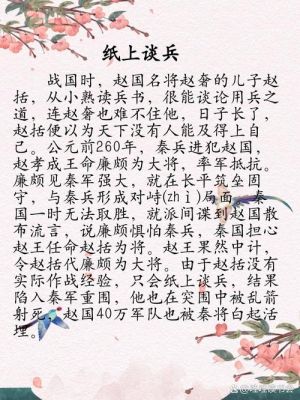 纸上谈兵
战国时，赵国名将赵奢的儿子赵
括，从小熟读兵书，很能谈论用兵之
道，连赵奢也难不住他，日子长了，
赵括便以为天下没有人能及得上自
己。公元前260年，秦兵进犯赵国，
赵孝成王命廉颇为大将，率军抵抗。
廉颇见秦军强大，就在长平筑垒固
守，与秦兵形成对峙(zhì)局面，秦
国一时无法取胜，就派间谍到赵国散
布流言，说廉颇惧怕秦兵，秦国担心
赵王任命赵括为将。赵王果然中计，
令赵括代廉颇为大将。由于赵括没有
实际作战经验，只会纸上谈兵，结果
陷入秦军重围，他也在突围中被乱箭
射死，赵国40万军队也被秦将白起活
埋。